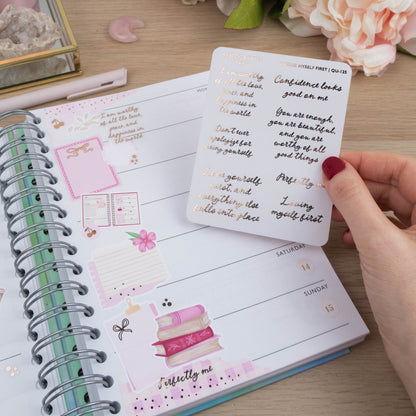 MYSELF FIRST | QU-135
I am worthy
of all the love,
peace, and
happiness in
the world
Confidence looks
good on me
Don't ever
apologize for
being yourself
You are enough,
you are beautiful,
and you are
worthy of all
good things
yourself
first, and
everything else
falls into place
Perfectly
Loving
myself first
I am worthy
of all the love,
peace, and
happiness in
the world
SATURDAY
14
SUNDAY
15
Perfectly me